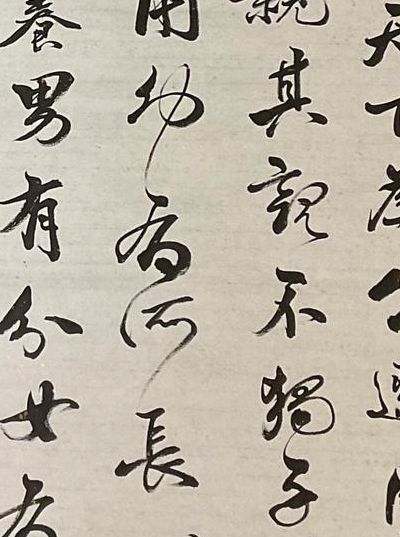 天下為公選
親其親不獨子
用幼有所長
養男有分女有